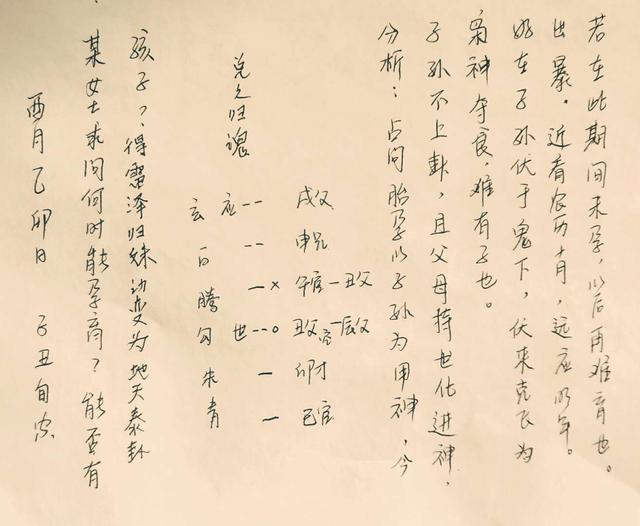 酉月乙卯日 子丑旬空
某女士求问何时能孕育？能否有
孩子？得雷泽归妹动变为地天泰卦
兑之归魂
玄 应-- 戌父
白 -- 申兄
腾 —× 午官—丑父
勾 世--○ 丑父—辰父
朱 — 卯才
青 — 巳官
分析：占问胎孕以子孙为用神，今
子孙不上卦，且父母持世化进神，
枭神夺食，难有子也。
好在子孙伏于鬼下，伏来克飞为
出暴。近看农历十月，远应明年。
若在此期间未孕，以后再难育也。